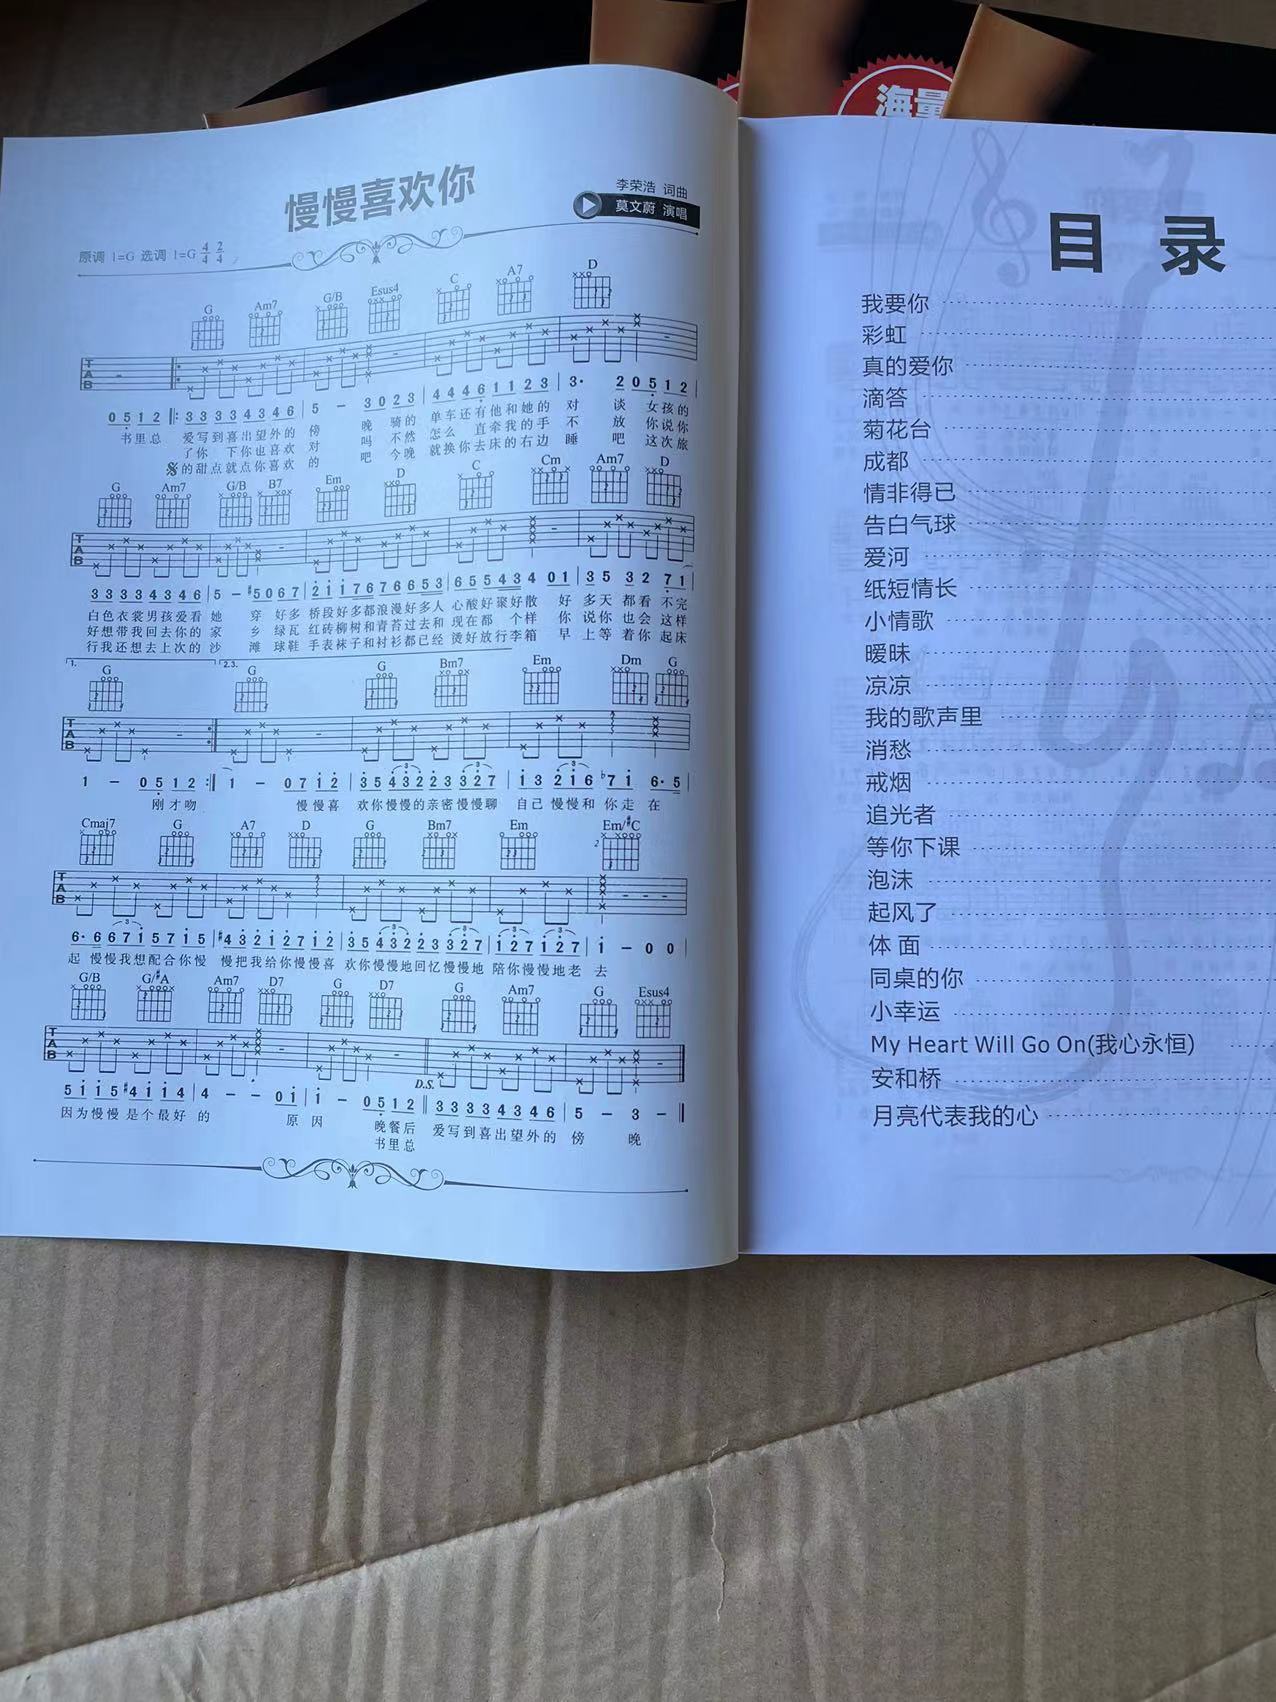 海量
慢慢喜欢你
李荣浩 词曲
莫文蔚 演唱
原调 1=G 选调 1=G 4/4 2/4
G Am7 G/B Esus4 C A7 D
TAB
0 5 1 2 ‖: 3 3 3 3 4 3 4 6 | 5 － 3 0 2 3 | 4 4 4 6 1 1 2 3 | 3· 2 0 5 1 2 |
书里总 爱写到喜出望外的 傍 晚 骑的 单车还有他和她的 对 谈 女孩的
了你 下你也喜欢 对 吗 不然 怎么 直牵我的手 不 放 你说你
𝄋的甜点就点你喜欢 的 吧 今晚 就换你去床的右边 睡 吧 这次旅
G Am7 G/B B7 Em D C Cm Am7 D
TAB
3 3 3 3 4 3 4 6 | 5 － #5 0 6 7 | 2 1 1 7 6 7 6 6 5 3 | 6 5 5 4 3 4 0 1 | 3 5 3 2 7 1 |
白色衣裳男孩爱看她 穿 好多 桥段好多都浪漫好多人 心酸好聚好散 好 多天 都看 不完
好想带我回去你的 家 乡 绿瓦 红砖柳树和青苔过去和 现在都 个样 你 说你 也会 这样
行我还想去上次的 沙 滩 球鞋 手表袜子和衬衫都已经 烫好放行李箱 早 上等 着你 起床
1. 2.3.
G G G Bm7 Em Dm G
TAB
1 － 0 5 1 2 :‖ 1 － 0 7 1 2 | 3 5 4 3 2 2 3 3 2 7 | 1 3 2 1 6 ♭7 1 6·5 |
刚才吻 慢慢喜 欢你慢慢的亲密慢慢聊 自己 慢慢和 你走 在
Cmaj7 G A7 D G Bm7 Em Em/#C
TAB
6· 6 6 7 1 5 7 1 5 | #4 3 2 1 2 7 1 2 | 3 5 4 3 2 2 3 3 2 7 | 1 2 7 1 2 7 | 1 － 0 0 |
起 慢慢我想配合你慢 慢把我给你慢慢喜 欢你慢慢地回忆慢慢地 陪你慢慢地老 去
G/B G/#A Am7 D7 G D7 G Am7 G Esus4
TAB
D.S.
5 1 1 5 #4 1 1 4 | 4 － － 0 1 | 1 － 0 5 1 2 ‖ 3 3 3 3 4 3 4 6 | 5 － 3 － ‖
因为慢慢是个最好的 原因 晚餐后 爱写到喜出望外的 傍 晚
书里总
目 录
我要你
彩虹
真的爱你
滴答
菊花台
成都
情非得已
告白气球
爱河
纸短情长
小情歌
暧昧
凉凉
我的歌声里
消愁
戒烟
追光者
等你下课
泡沫
起风了
体 面
同桌的你
小幸运
My Heart Will Go On(我心永恒)
安和桥
月亮代表我的心